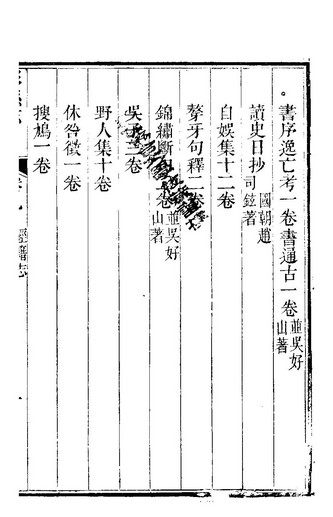 書序逸亡考一卷書通古一卷並吳好山著
讀史日抄國朝趙司鉉著
自娛集十二卷
聱牙句釋二卷
錦繡斷 卷並吳好山著
吳 二卷
野人集十卷
休咎徵一卷
搜鳩一卷
經籍志